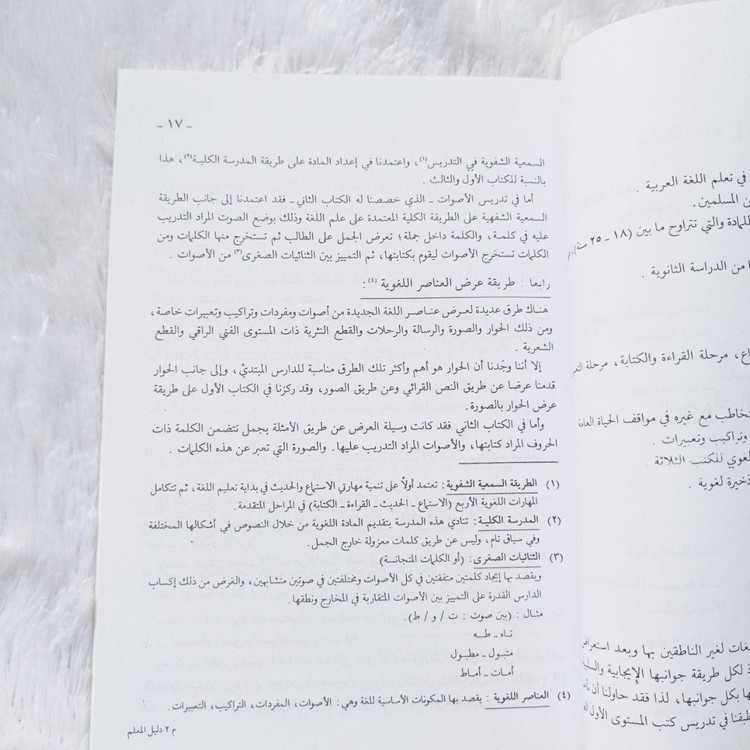 - ١٧ -
السمعية الشفوية في التدريس(١)، واعتمدنا في إعداد المادة على طريقة المدرسة الكلية(٢)، هذا
بالنسبة للكتاب الأول والثالث .
أما في تدريس الأصوات - الذي خصصنا له الكتاب الثاني - فقد اعتمدنا إلى جانب الطريقة
السمعية الشفهية على الطريقة الكلية المعتمدة على علم اللغة وذلك بوضع الصوت المراد التدريب
عليه في كلمة، والكلمة داخل جملة؛ تعرض الجمل على الطالب ثم تستخرج منها الكلمات ومن
الكلمات تستخرج الأصوات ليقوم بكتابتها، ثم التمييز بين الثنائيات الصغرى(٣) من الأصوات .
رابعا : طريقة عرض العناصر اللغوية (٤):
هناك طرق عديدة لعرض عناصر اللغة الجديدة من أصوات ومفردات وتراكيب وتعبيرات خاصة،
ومن ذلك الحوار والصورة والرسالة والرحلات والقطع النثرية ذات المستوى الفني الراقي والقطع
الشعرية .
إلا أننا وجدنا أن الحوار هو أهم وأكثر تلك الطرق مناسبة للدارس المبتديء، وإلى جانب الحوار
قدمنا عرضا عن طريق النص القرائي وعن طريق الصور، وقد ركزنا في الكتاب الأول على طريقة
عرض الحوار بالصورة.
وأما في الكتاب الثاني فقد كانت وسيلة العرض عن طريق الأمثلة بجمل تتضمن الكلمة ذات
الحروف المراد كتابتها، والأصوات المراد التدريب عليها. والصورة التي تعبر عن هذه الكلمات .
(١) الطريقة السمعية الشفوية : تعتمد أولاً على تنمية مهارتي الاستماع والحديث في بداية تعليم اللغة، ثم تتكامل
المهارات اللغوية الأربع (الاستماع - الحديث - القراءة - الكتابة) في المراحل المتقدمة.
(٢) المدرسة الكلية : تنادي هذه المدرسة بتقديم المادة اللغوية من خلال النصوص في أشكالها المختلفة
وفي سياق تام، وليس عن طريق كلمات معزولة خارج الجمل.
(٣) الثنائيات الصغرى : (أو الكلمات المتجانسة)
ويقصد بها إيجاد كلمتين متفقتين في كل الأصوات ومختلفتين في صوتين متشابهين، والغرض من ذلك إكساب
الدارس القدرة على التمييز بين الأصوات المتقاربة في المخارج ونطقها.
مثال : (بين صوت : ت / و / ط).
تاه - طه
متبول - مطبول
أمات - أماط
(٤) العناصر اللغوية : يقصد بها المكونات الأساسية للغة وهي: الأصوات، المفردات، التراكيب، التعبيرات.
م ٢ دليل المعلم
في تعلم اللغة العربية .
ن المسلمين.
للمادة والتي تتراوح ما بين (١٨ - ٢٥ سنة)
ا من الدراسة الثانوية .
اع، مرحلة القراءة والكتابة، مرحلة
تخاطب مع غيره في مواقف الحياة العامة
وتراكيب وتعبيرات .
لغوي للكتب الثلاثة
ذخيرة لغوية .
لغات لغير الناطقين بها وبعد استعراض
ذ لكل طريقة جوانبها الإيجابية
بها بكل جوانبها، لذا فقد حاولنا أن
طبقنا في تدريس كتب المستوى الأول